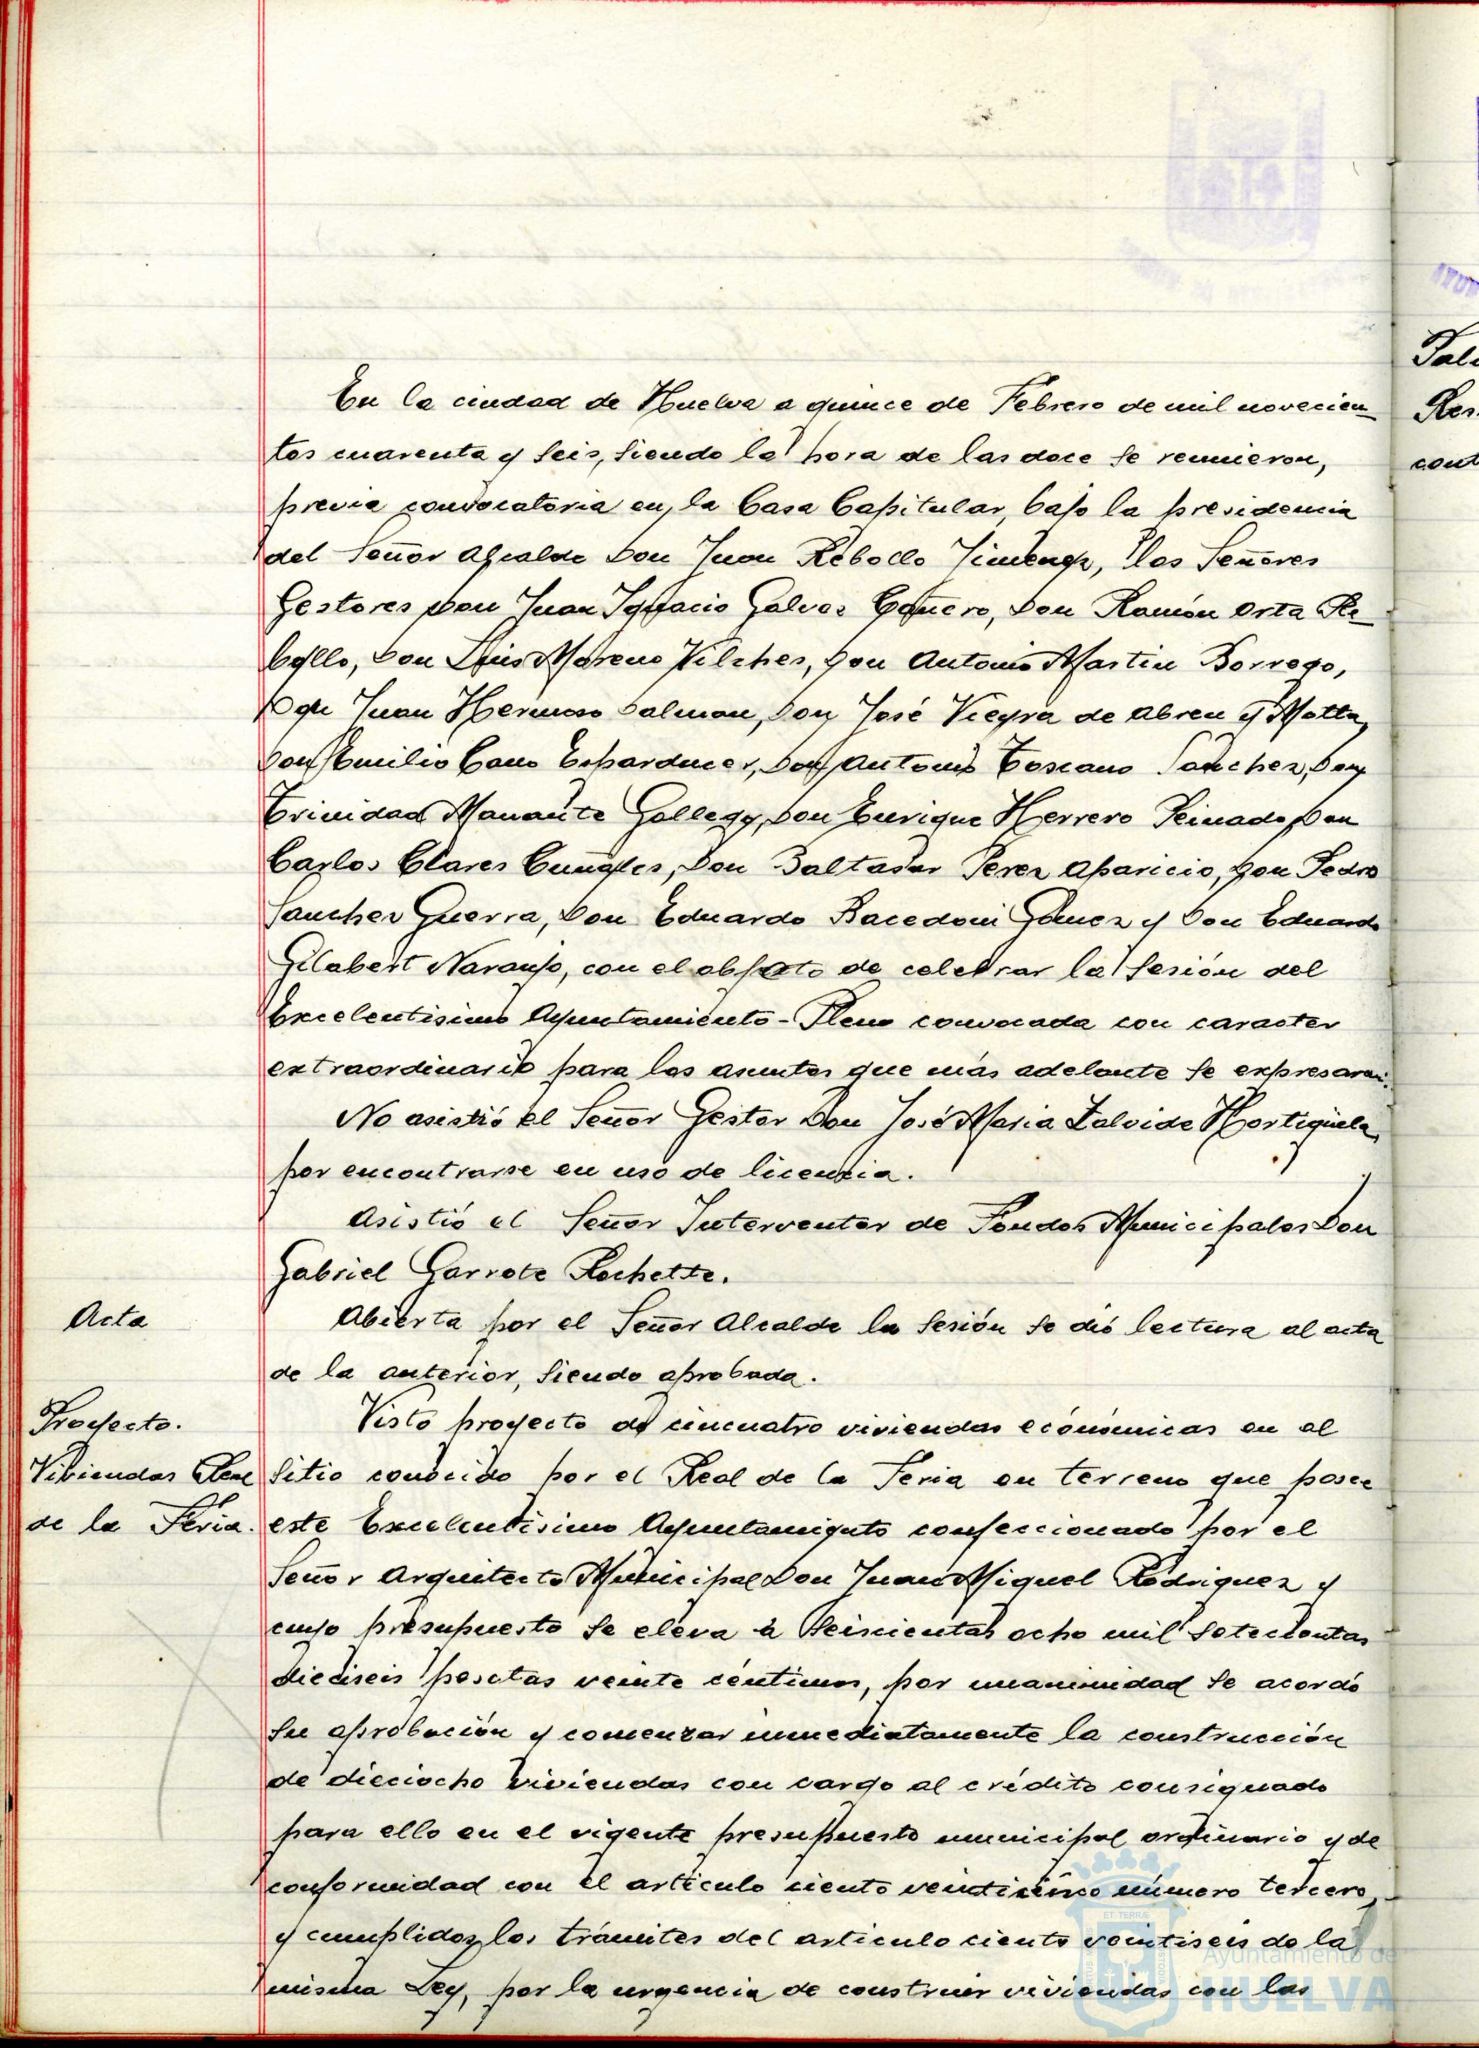 En la ciudad de Huelva a quince de Febrero de mil novecien-
tos cuarenta y seis, siendo la hora de las doce se reunieron,
previa convocatoria en la Casa Capitular, bajo la presidencia
del Señor Alcalde Don Juan Rebollo Jimenez, los Señores
Gestores Don Juan Ignacio Galvez Cañero, Don Ramón Orta Re-
bollo, Don Luis Moreno Vilches, Don Antonio Martin Borrego,
Don Juan Hermoso Dalmau, Don José Vieyra de Abreu y Motta,
Don Emilio Cano Don Antonio Toscano Sanchez, Don
Trinidad Gallego, Don Enrique Herrero Peinado, Don
Carlos Clares Don Baltasar Perez Aparicio, Don Pedro
Sanchez Guerra, Don Eduardo Bacedoni Gomez y Don Eduardo
Gilabert Naranjo, con el objeto de celebrar la sesión del
Excelentisimo Ayuntamiento-Pleno convocada con caracter
extraordinario para los asuntos que más adelante se expresaran.
No asistió el Señor Gestor Don José Maria Zalvide Hortigüela,
por encontrarse en uso de licencia.
Asistió el Señor Interventor de Fondos Municipales Don
Gabriel Garrote Rochette.
Acta
Abierta por el Señor Alcalde la sesión se dió lectura al acta
de la anterior, siendo aprobada.
Proyecto.
Viviendas Real
de la Feria.
Visto proyecto de cincuatro viviendas económicas en el
sitio conocido por el Real de la Feria en terreno que posee
este Excelentisimo Ayuntamiento confeccionado por el
Señor Arquitecto Municipal Don Juan Miguel Rodriguez y
cuyo presupuesto se eleva a seiscientas ocho mil setecientas
dieciseis pesetas veinte céntimos, por unanimidad se acordó
su aprobación y comenzar inmediatamente la construcción
de dieciocho viviendas con cargo al crédito consignado
para ello en el vigente presupuesto municipal ordinario y de
conformidad con el articulo ciento veinticinco número tercero,
y cumplidos los trámites del articulo ciento veintiseis de la
misma Ley, por la urgencia de construir viviendas con las
Ayuntamiento de
HUELVA